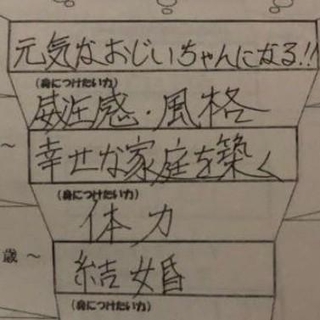 元気なおじいちゃんになる!!
(身につけたい力)
威圧感・風格
～
幸せな家庭を築く
(身につけたい力)
体力
歳～
結婚
(身につけたい力)